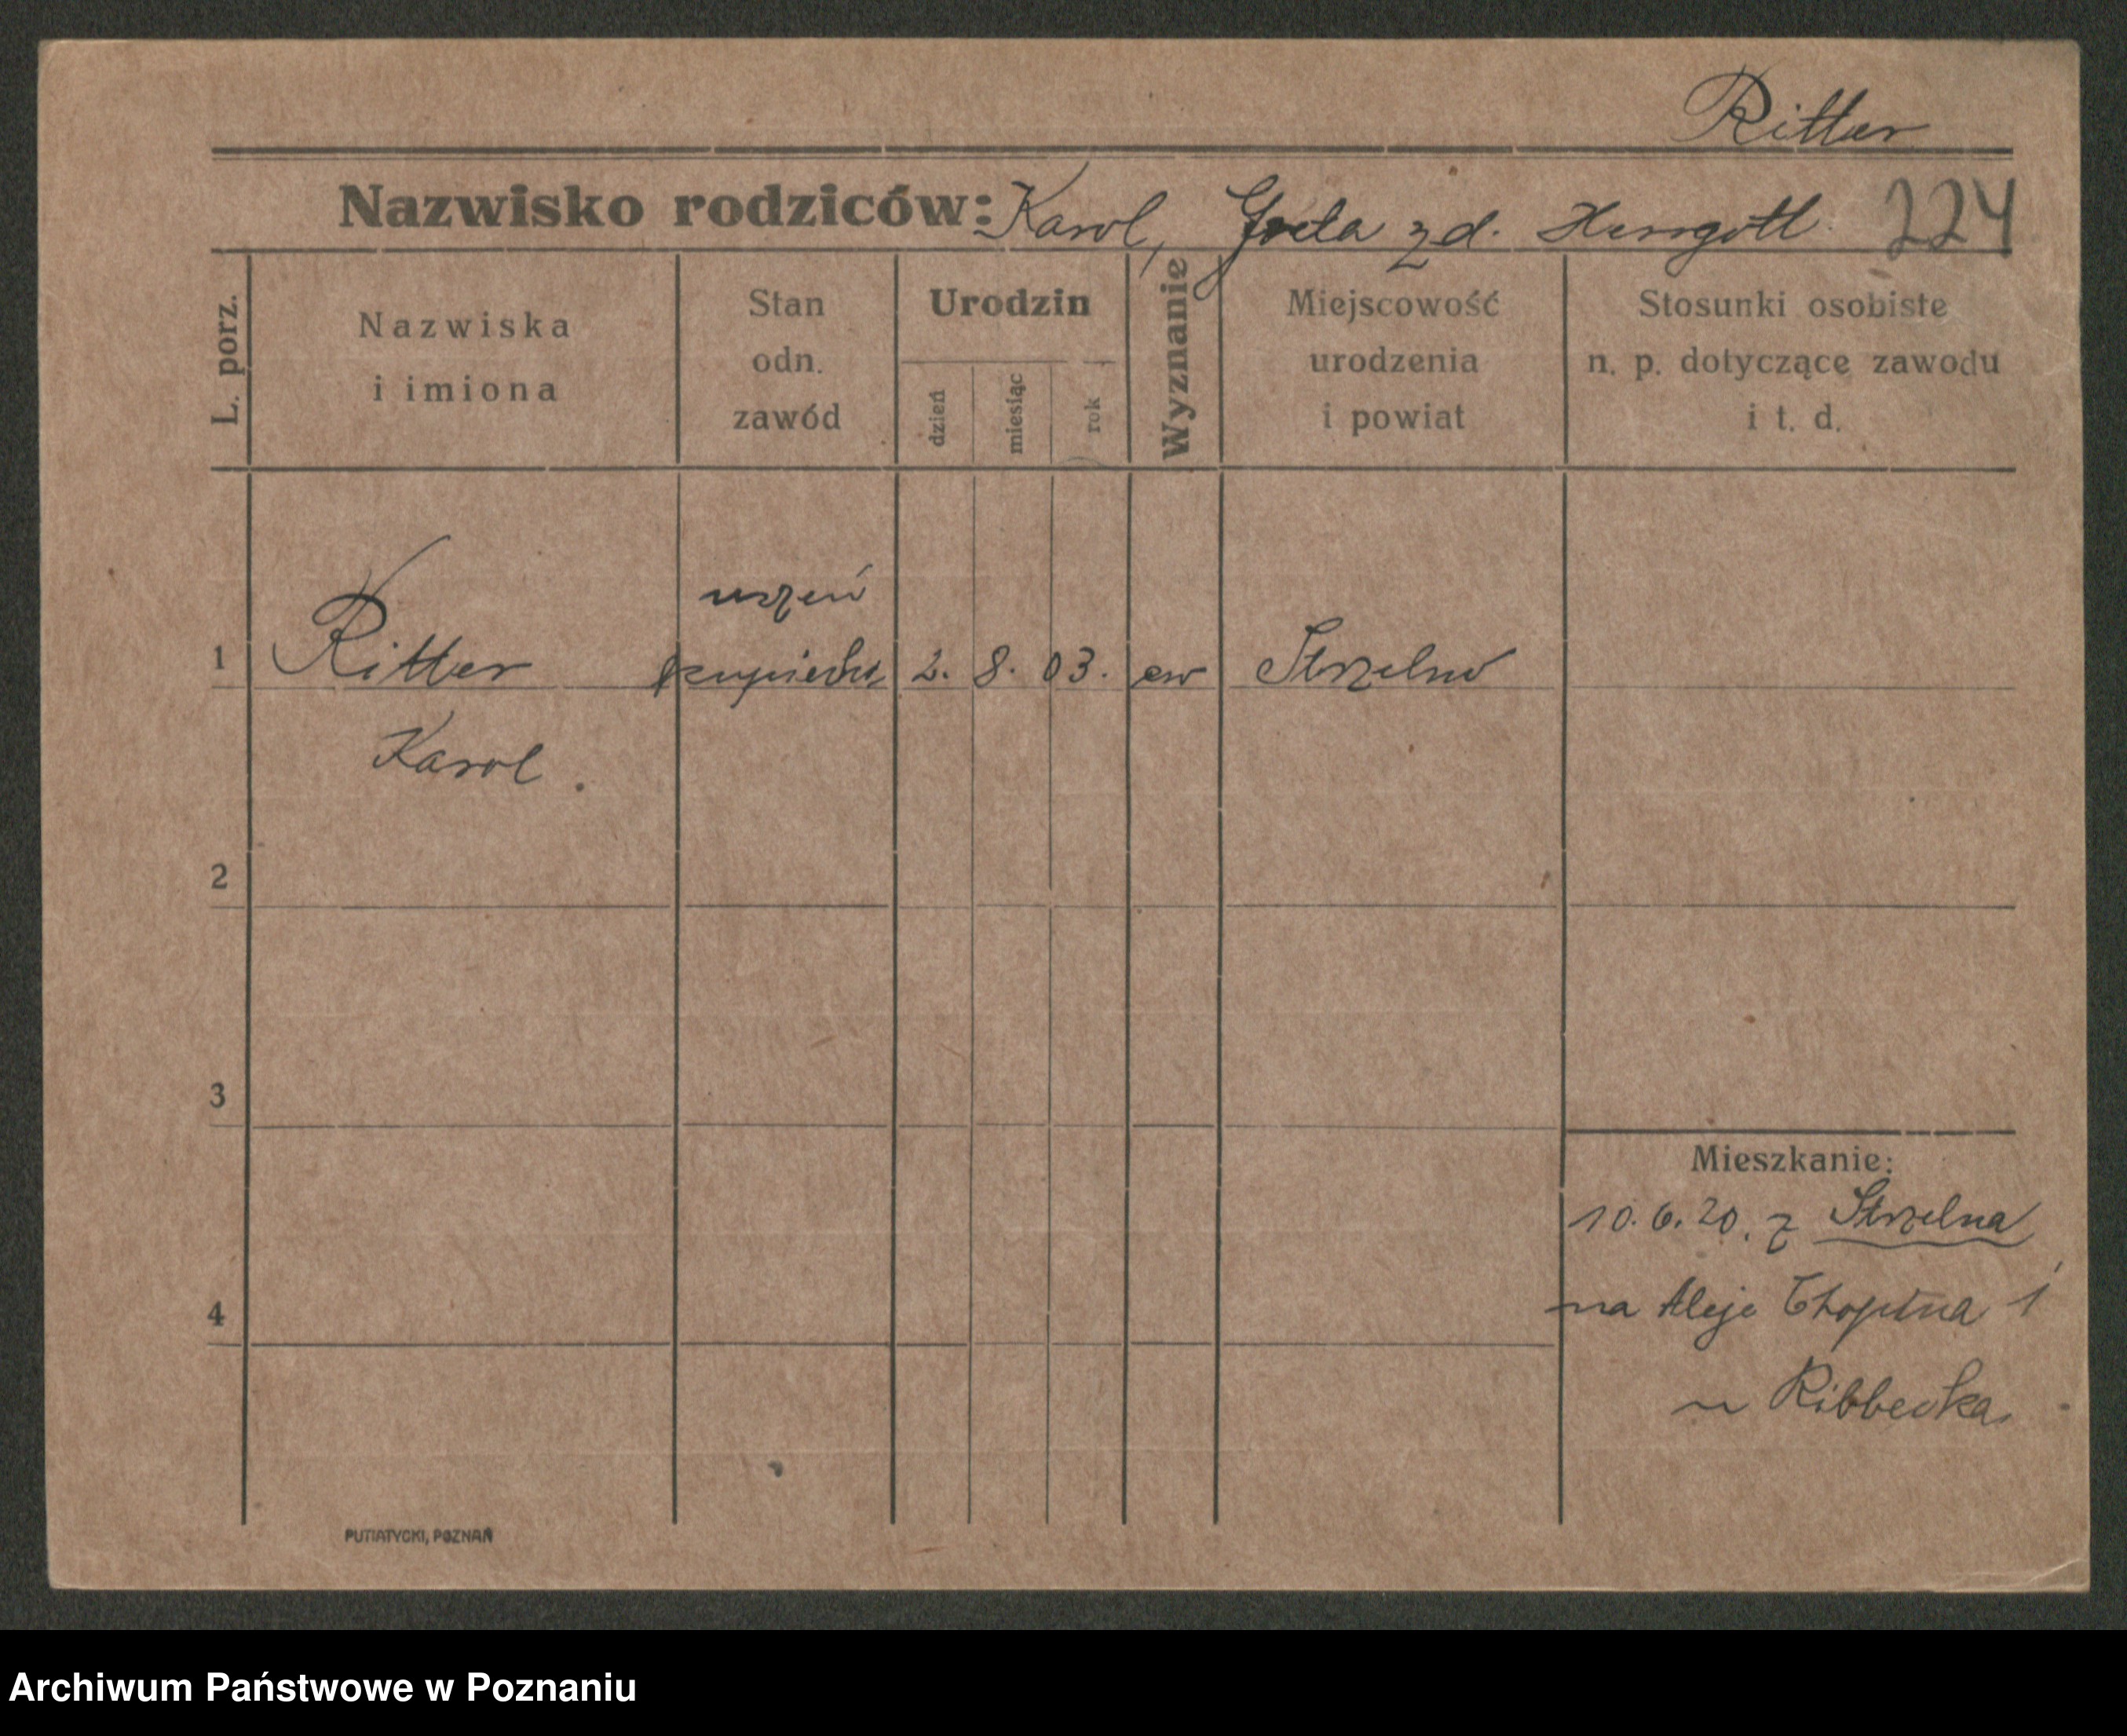 Ritter
Nazwisko rodziców: Karol, Greta z d. Herrgott 224
L. porz.
Nazwiska
i imiona
Stan
odn.
zawód
Urodzin
dzień
miesiąc
rok
Wyznanie
Miejscowość
urodzenia
i powiat
Stosunki osobiste
n. p. dotyczące zawodu
i t. d.
uczeń
1 Ritter kupiecki 2. 8. 03. ew Strzelno
Karol.
2
3
4
Mieszkanie:
10.6.20. z Strzelna
na Aleje Chopina 1
u Ribbecka
PUTIATYCKI, POZNAŃ
Archiwum Państwowe w Poznaniu